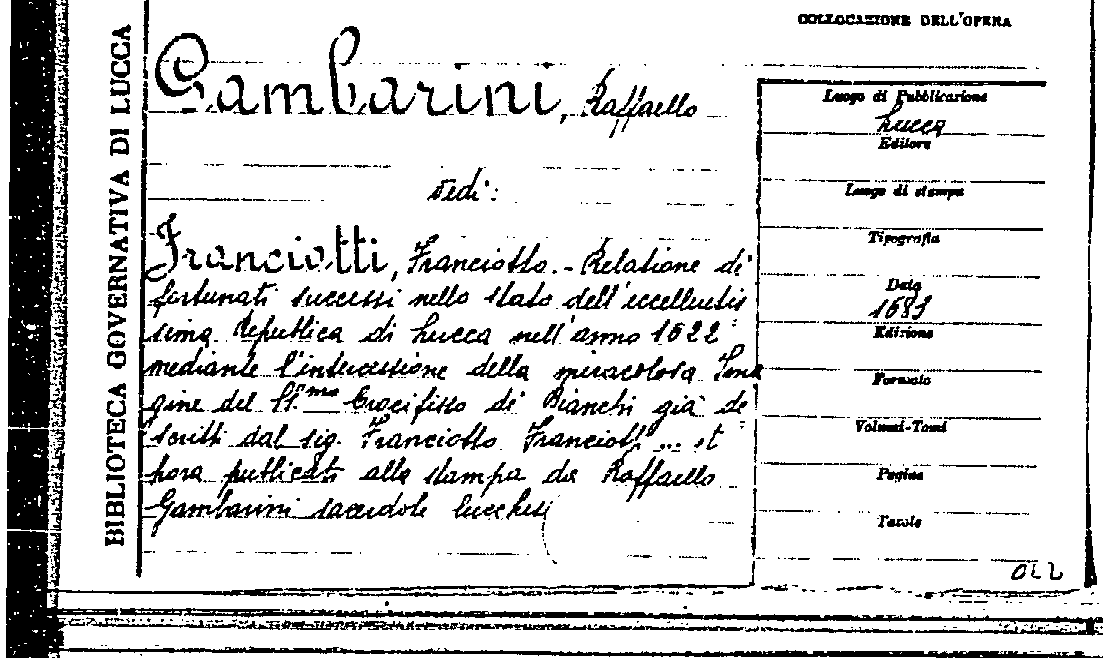 COLLOCAZIONE DELL'OPERA
BIBLIOTECA GOVERNATIVA DI LUCCA
Gambarini, Raffaello
vedi:
Franciotti, Franciotto. - Relatione di
fortunati successi nello stato dell'eccellentis
sima Republica di Lucca nell'anno 1622
mediante l'intercessione della miracolosa Ima
gine del SS.mo Crocifisso di Bianchi già de
scritti dal sig. Franciotto Franciotti ... et
hora publicati alla stampa da Raffaello
Gambarini sacerdote lucchese
Luogo di Pubblicazione
Lucca
Editore
Luogo di stampa
Tipografia
Data
1683
Edizione
Formato
Volumi-Tomi
Pagine
Tavole